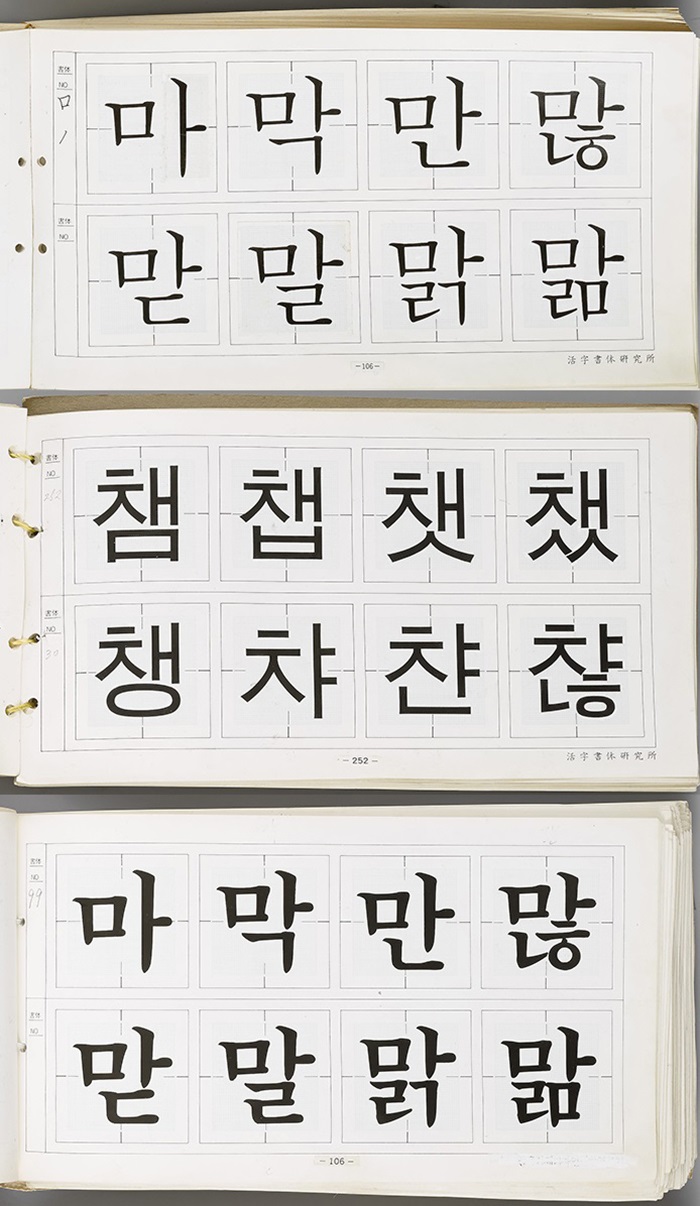 書体
NO
ㅁ
마 막 만 많
書体
NO
맏 말 맑 맒
-106-
活字書体硏究所
書体
NO
252
챔 챕 챗 챘
書体
NO
30
챙 챠 챤 챦
-252-
活字書体硏究所
書体
NO
99
마 막 만 많
書体
NO
맏 말 맑 맒
-106-